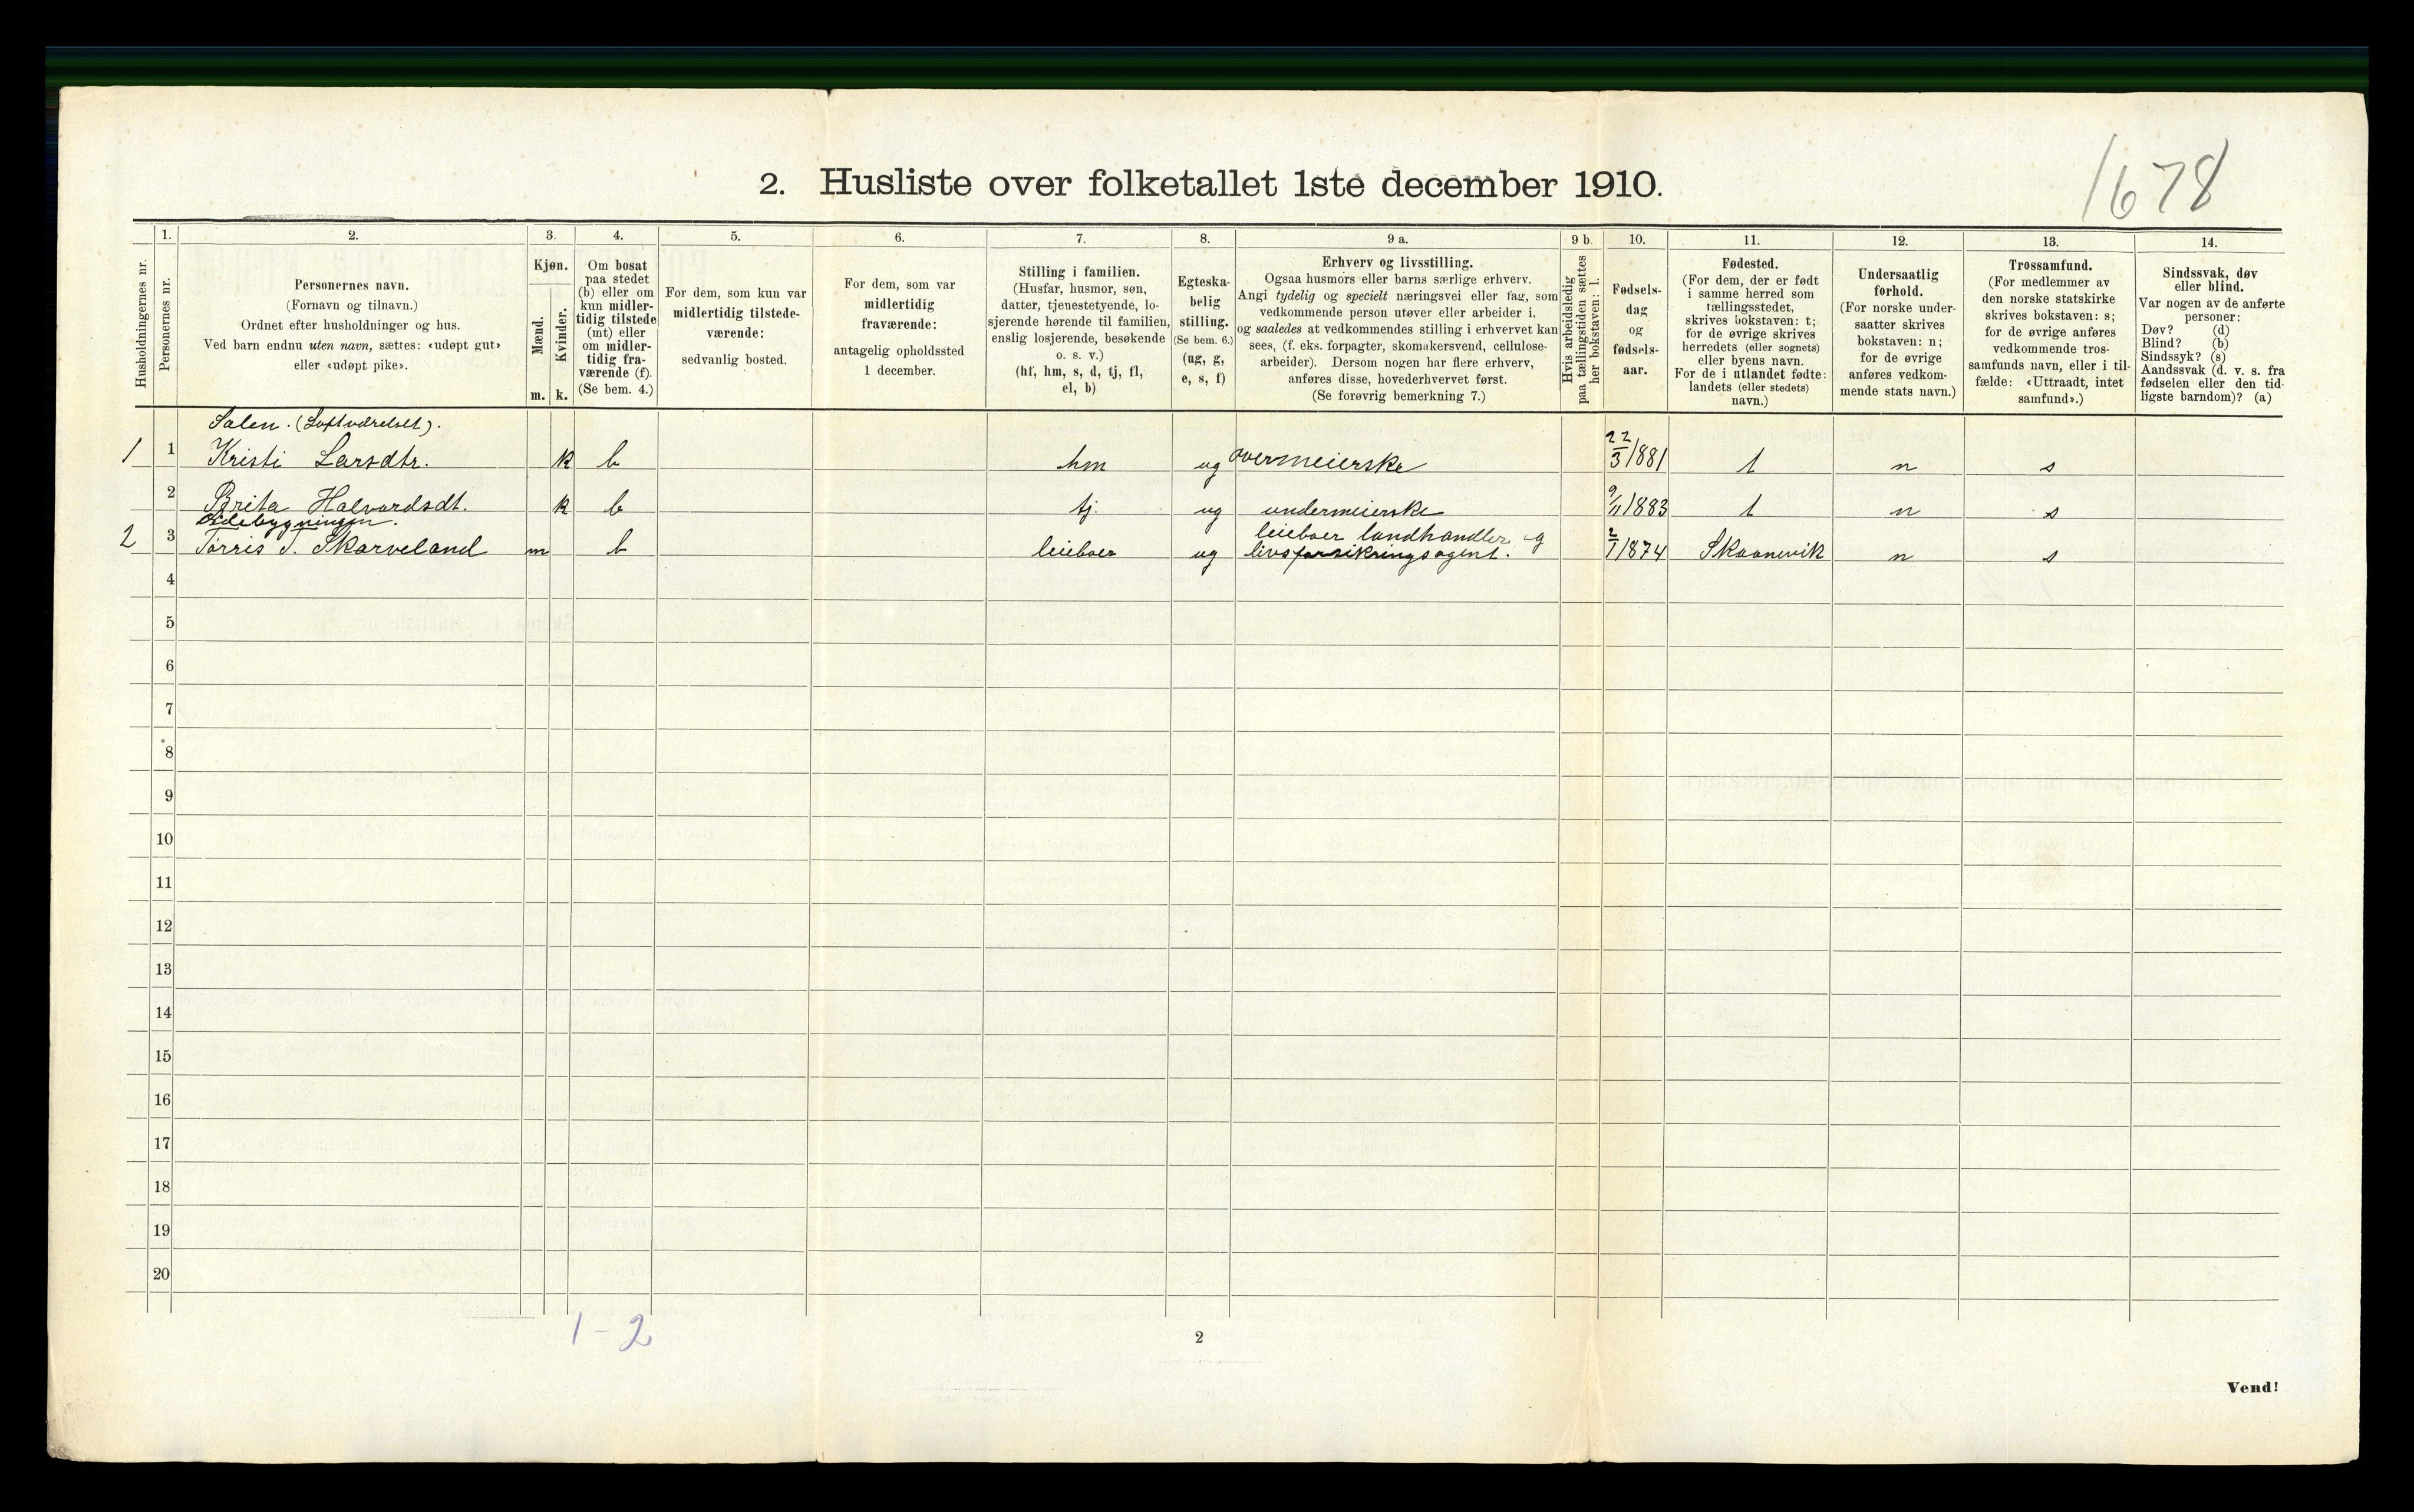 1678
2. Husliste over folketallet 1ste december 1910.
Husholdningernes nr.
1.
Personernes nr.
2.
Personernes navn.
(Fornavn og tilnavn.)
Ordnet efter husholdninger og hus.
Ved barn endnu uten navn, sættes: «udøpt gut»
eller «udøpt pike».
3.
Kjøn.
Mænd.
m.
Kvinder.
k.
4.
Om bosat
paa stedet
(b) eller om
kun midler-
tidig tilstede
(mt) eller
om midler-
tidig fra-
værende (f).
(Se bem. 4.)
5.
For dem, som kun var
midlertidig tilstede-
værende:
sedvanlig bosted.
6.
For dem, som var
midlertidig
fraværende:
antagelig opholdssted
1 december.
7.
Stilling i familien.
(Husfar, husmor, søn,
datter, tjenestetyende, lo-
sjerende hørende til familien,
enslig losjerende, besøkende
o. s. v.)
(hf, hm, s, d, tj, fl,
el, b)
8.
Egteska-
belig
stilling.
(Se bem. 6.)
(ug, g,
e, s, f)
9 a.
Erhverv og livsstilling.
Ogsaa husmors eller barns særlige erhverv.
Angi tydelig og specielt næringsvei eller fag, som
vedkommende person utøver eller arbeider i,
og saaledes at vedkommendes stilling i erhvervet kan
sees, (f. eks. forpagter, skomakersvend, cellulose-
arbeider). Dersom nogen har flere erhverv,
anføres disse, hovederhvervet først.
(Se forøvrig bemerkning 7.)
9 b.
Hvis arbeidsledig
paa tællingstiden sættes
her bokstaven: l.
10.
Fødsels-
dag
og
fødsels-
aar.
11.
Fødested.
(For dem, der er født
i samme herred som
tællingsstedet,
skrives bokstaven: t;
for de øvrige skrives
herredets (eller sognets)
eller byens navn.
For de i utlandet fødte:
landets (eller stedets)
navn.)
12.
Undersaatlig
forhold.
(For norske under-
saatter skrives
bokstaven: n;
for de øvrige
anføres vedkom-
mende stats navn.)
13.
Trossamfund.
(For medlemmer av
den norske statskirke
skrives bokstaven: s;
for de øvrige anføres
vedkommende tros-
samfunds navn, eller i til-
fælde: «Uttraadt, intet
samfund».)
14.
Sindssvak, døv
eller blind.
Var nogen av de anførte
personer:
Døv? (d)
Blind? (b)
Sindssyk? (s)
Aandssvak (d. v. s. fra
fødselen eller den tid-
ligste barndom)? (a)
Salen. (Loftværelset).
1 1 Kristi Larsdtr. k b hm ug overmeierske 22/3 1881 t n s
2 Brita Halvardsdt. k b tj. ug undermeierske 9/11 1883 t n s
Sidebygningen.
2 3 Tørris T. Skarveland m b leieboer ug leieboer landhandler og
livsforsikringsagent. 2/1 1874 Skaanevik n s
4
5
6
7
8
9
10
11
12
13
14
15
16
17
18
19
20
1-2
2
Vend!